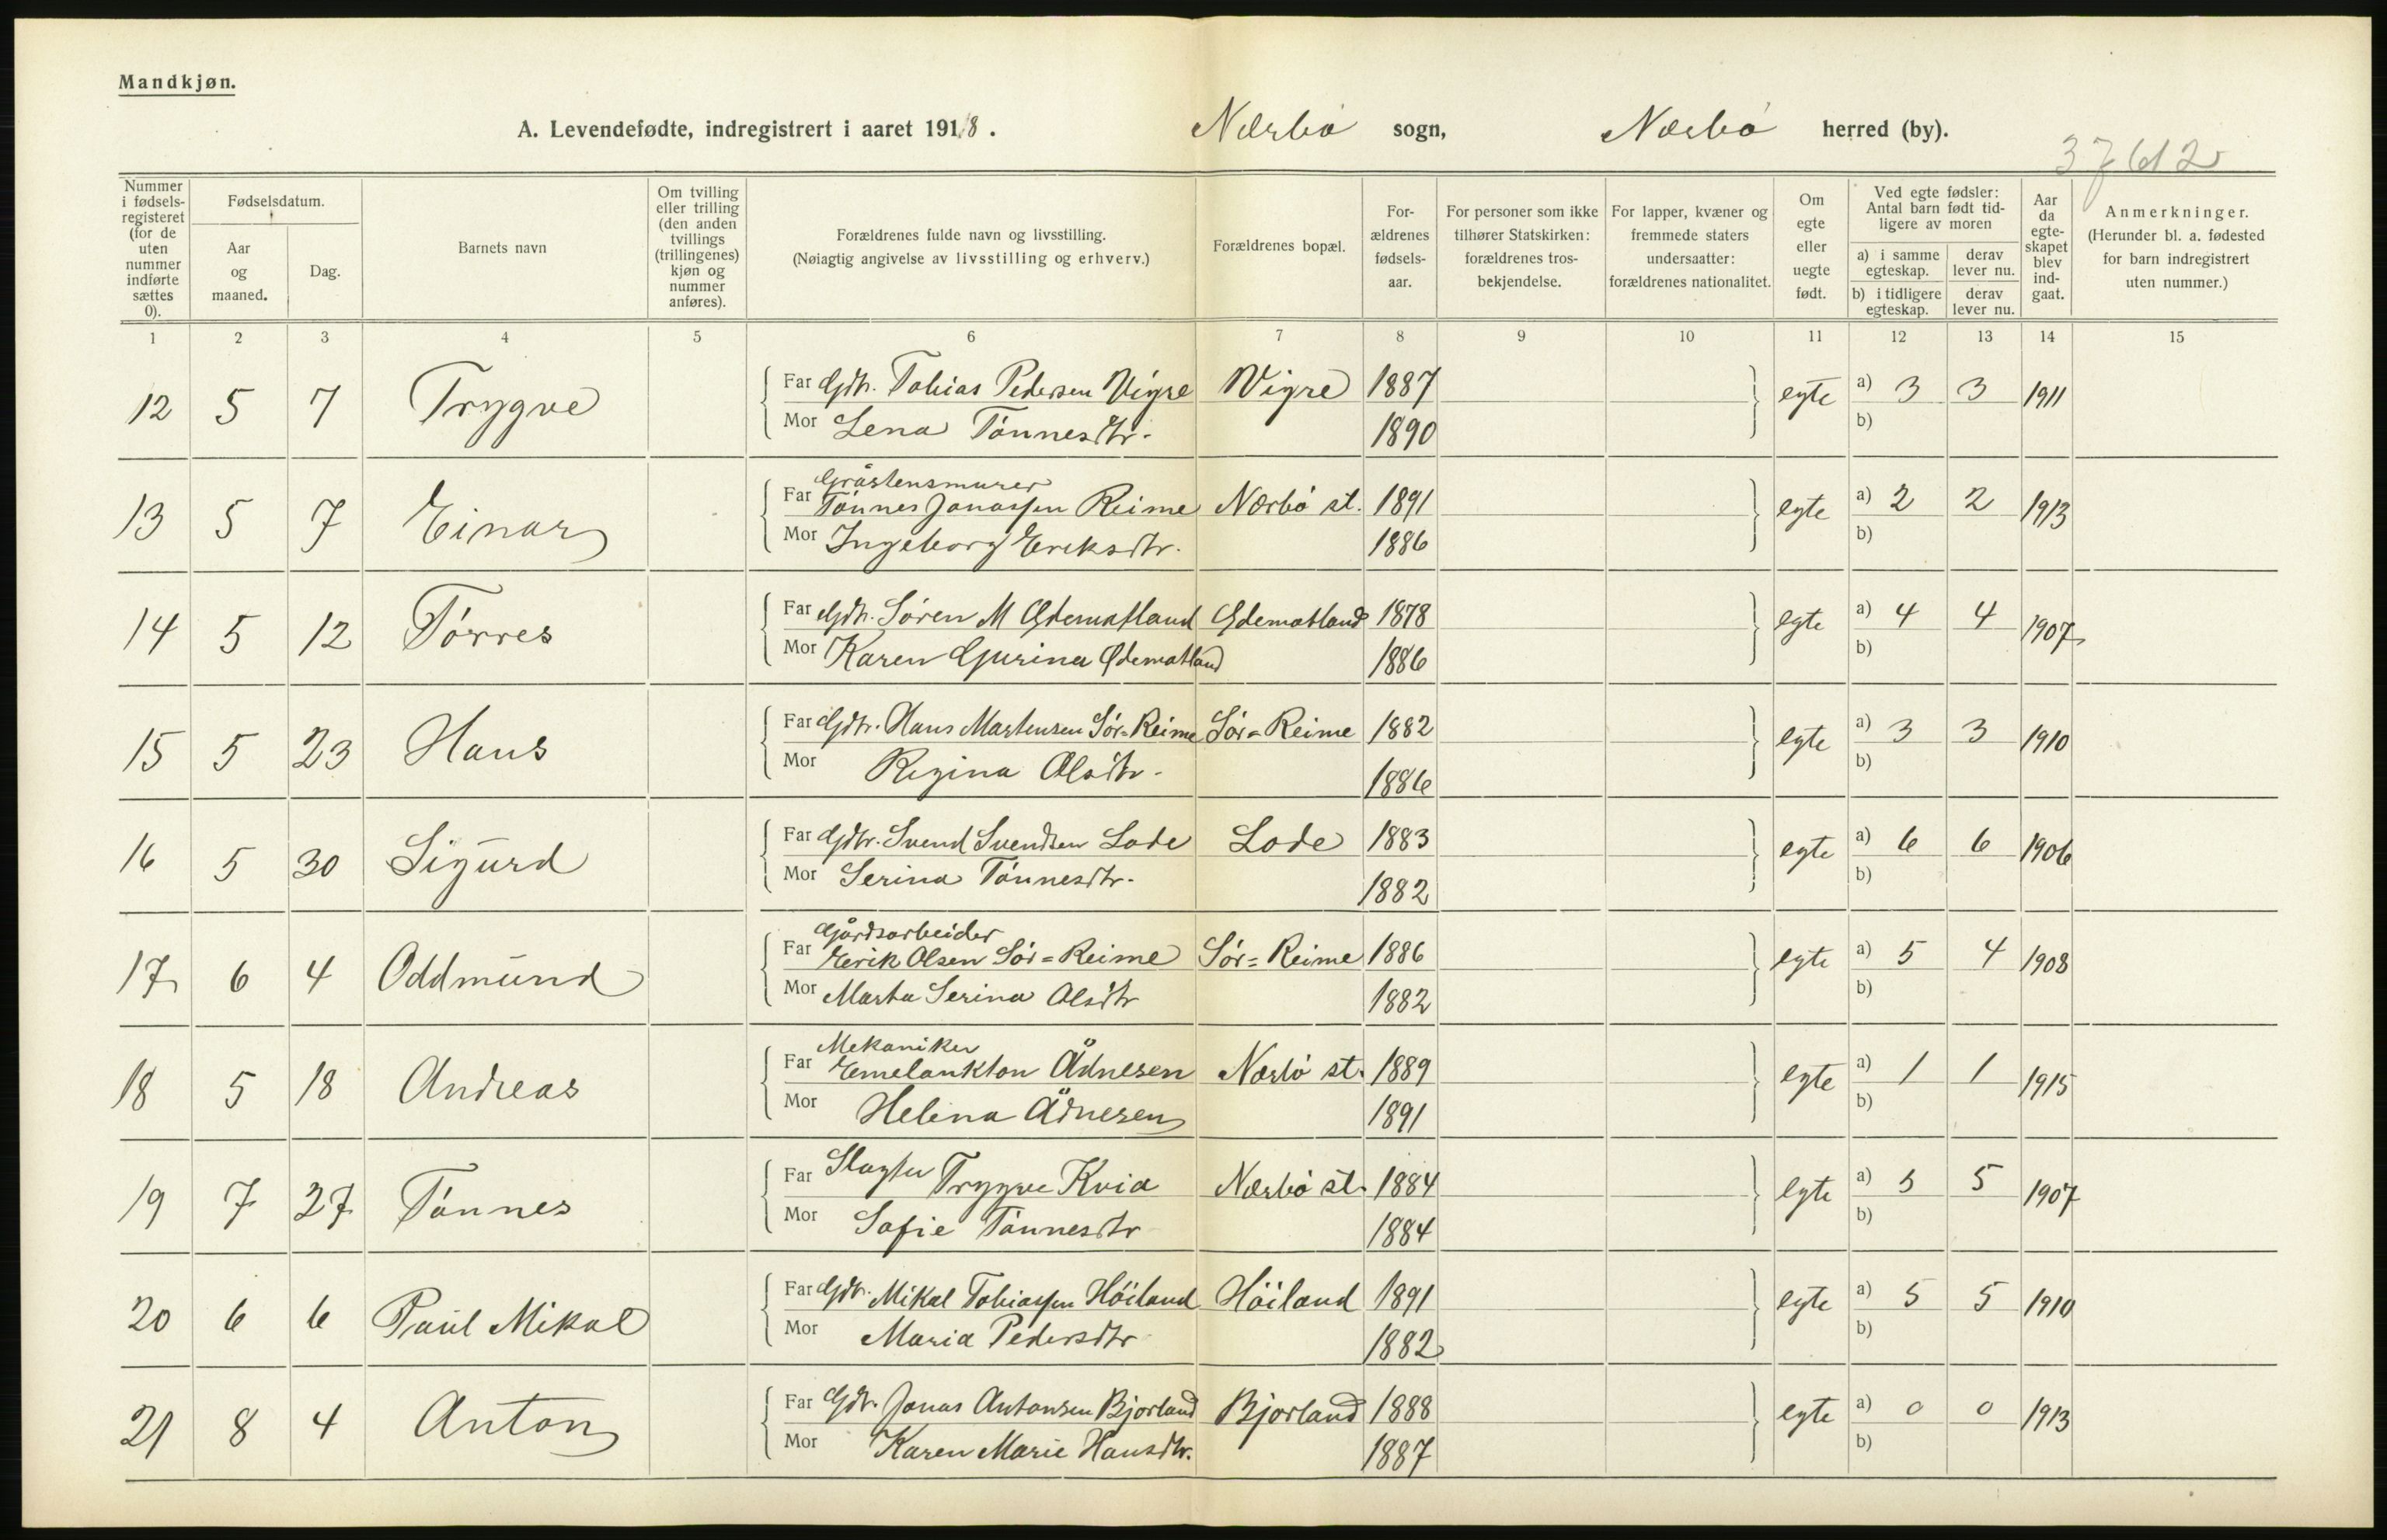 Mandkjøn.
A. Levendefødte, indregistrert i aaret 1918. Nærbö sogn, Nærbö herred (by).
37612
Nummer i fødsels-registeret (for de uten nummer indførte sættes 0).
Fødselsdatum.
Aar og maaned.
Dag.
Barnets navn
Om tvilling eller trilling (den anden tvillings (trillingenes) kjøn og nummer anføres).
Forældrenes fulde navn og livsstilling.
(Nøiagtig angivelse av livsstilling og erhverv.)
Forældrenes bopæl.
For-ældrenes fødsels-aar.
For personer som ikke tilhører Statskirken: forældrenes tros-bekjendelse.
For lapper, kvæner og fremmede staters undersaatter: forældrenes nationalitet.
Om egte eller uegte født.
Ved egte fødsler: Antal barn født tid-ligere av moren
a) i samme egteskap.
derav lever nu.
b) i tidligere egteskap.
derav lever nu.
Aar da egte-skapet blev ind-gaat.
Anmerkninger.
(Herunder bl. a. fødested for barn indregistrert uten nummer.)
1 2 3 4 5 6 7 8 9 10 11 12 13 14 15
12 5 7 Trygve Far Gdr. Tobias Pedersen Vigre Vigre 1887 egte a) 3 3 1911
Mor Lena Tönnesdtr. 1890 b)
Gråstensmurer
13 5 7 Einar Far Tönnes Jonassen Reime Nærbö st. 1891 egte a) 2 2 1913
Mor Ingeborg Eriksdtr. 1886 b)
14 5 12 Törres Far Gdr. Sören M Ødemotland Ødemotland 1878 egte a) 4 4 1907
Mor Karen Gurina Ødemotland 1886 b)
15 5 23 Hans Far Gdr. Hans Martensen Sör=Reime Sör=Reime 1882 egte a) 3 3 1910
Mor Regina Olsdtr. 1886 b)
16 5 30 Sigurd Far Gdr. Svend Svendsen Lode Lode 1883 egte a) 6 6 1906
Mor Serina Tönnesdtr. 1882 b)
Gårdsarbeider
17 6 4 Oddmund Far Erik Olsen Sör=Reime Sör=Reime 1886 egte a) 5 4 1908
Mor Marta Serina Olsdtr 1882 b)
Mekaniker
18 5 18 Andreas Far Emelankton Ådnesen Nærbö st. 1889 egte a) 1 1 1915
Mor Helena Ådnesen 1891 b)
19 7 27 Tönnes Far Slagter Trygve Kvia Nærbö st. 1884 egte a) 5 5 1907
Mor Sofie Tönnesdtr 1884 b)
20 6 6 Paul Mikal Far Gdr. Mikal Tobiassen Höiland Höiland 1891 egte a) 5 5 1910
Mor Maria Pedersdtr 1882 b)
21 8 4 Anton Far Gdr. Jonas Antonsen Bjorland Bjorland 1888 egte a) 0 0 1913
Mor Karen Marie Hansdtr. 1887 b)